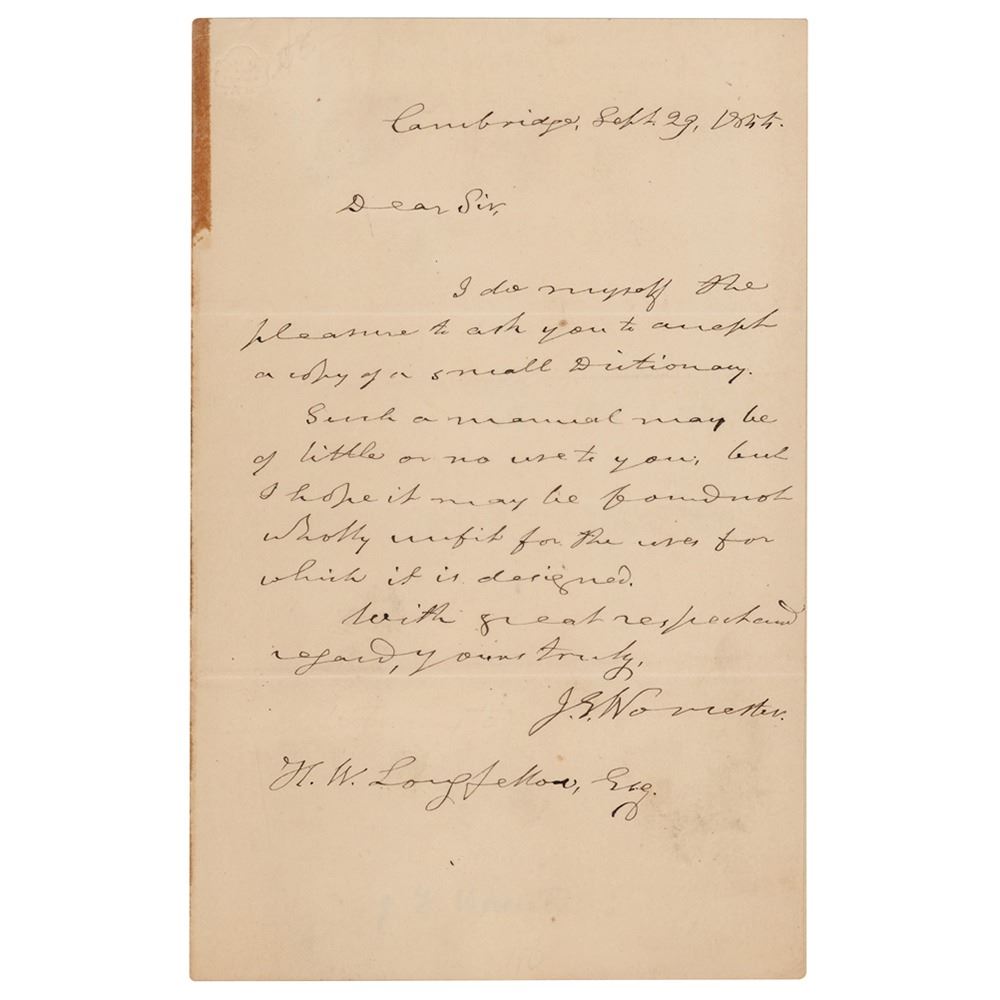 Cambridge, Sept. 29, 1855.
Dear Sir,
I do myself the
pleasure to ask you to accept
a copy of a small Dictionary.
Such a manual may be
of little or no use to you; but
I hope it may be found not
wholly unfit for the uses for
which it is designed.
With great respect and
regard, yours truly,
J.E. Worcester.
H. W. Longfellow, Esq.